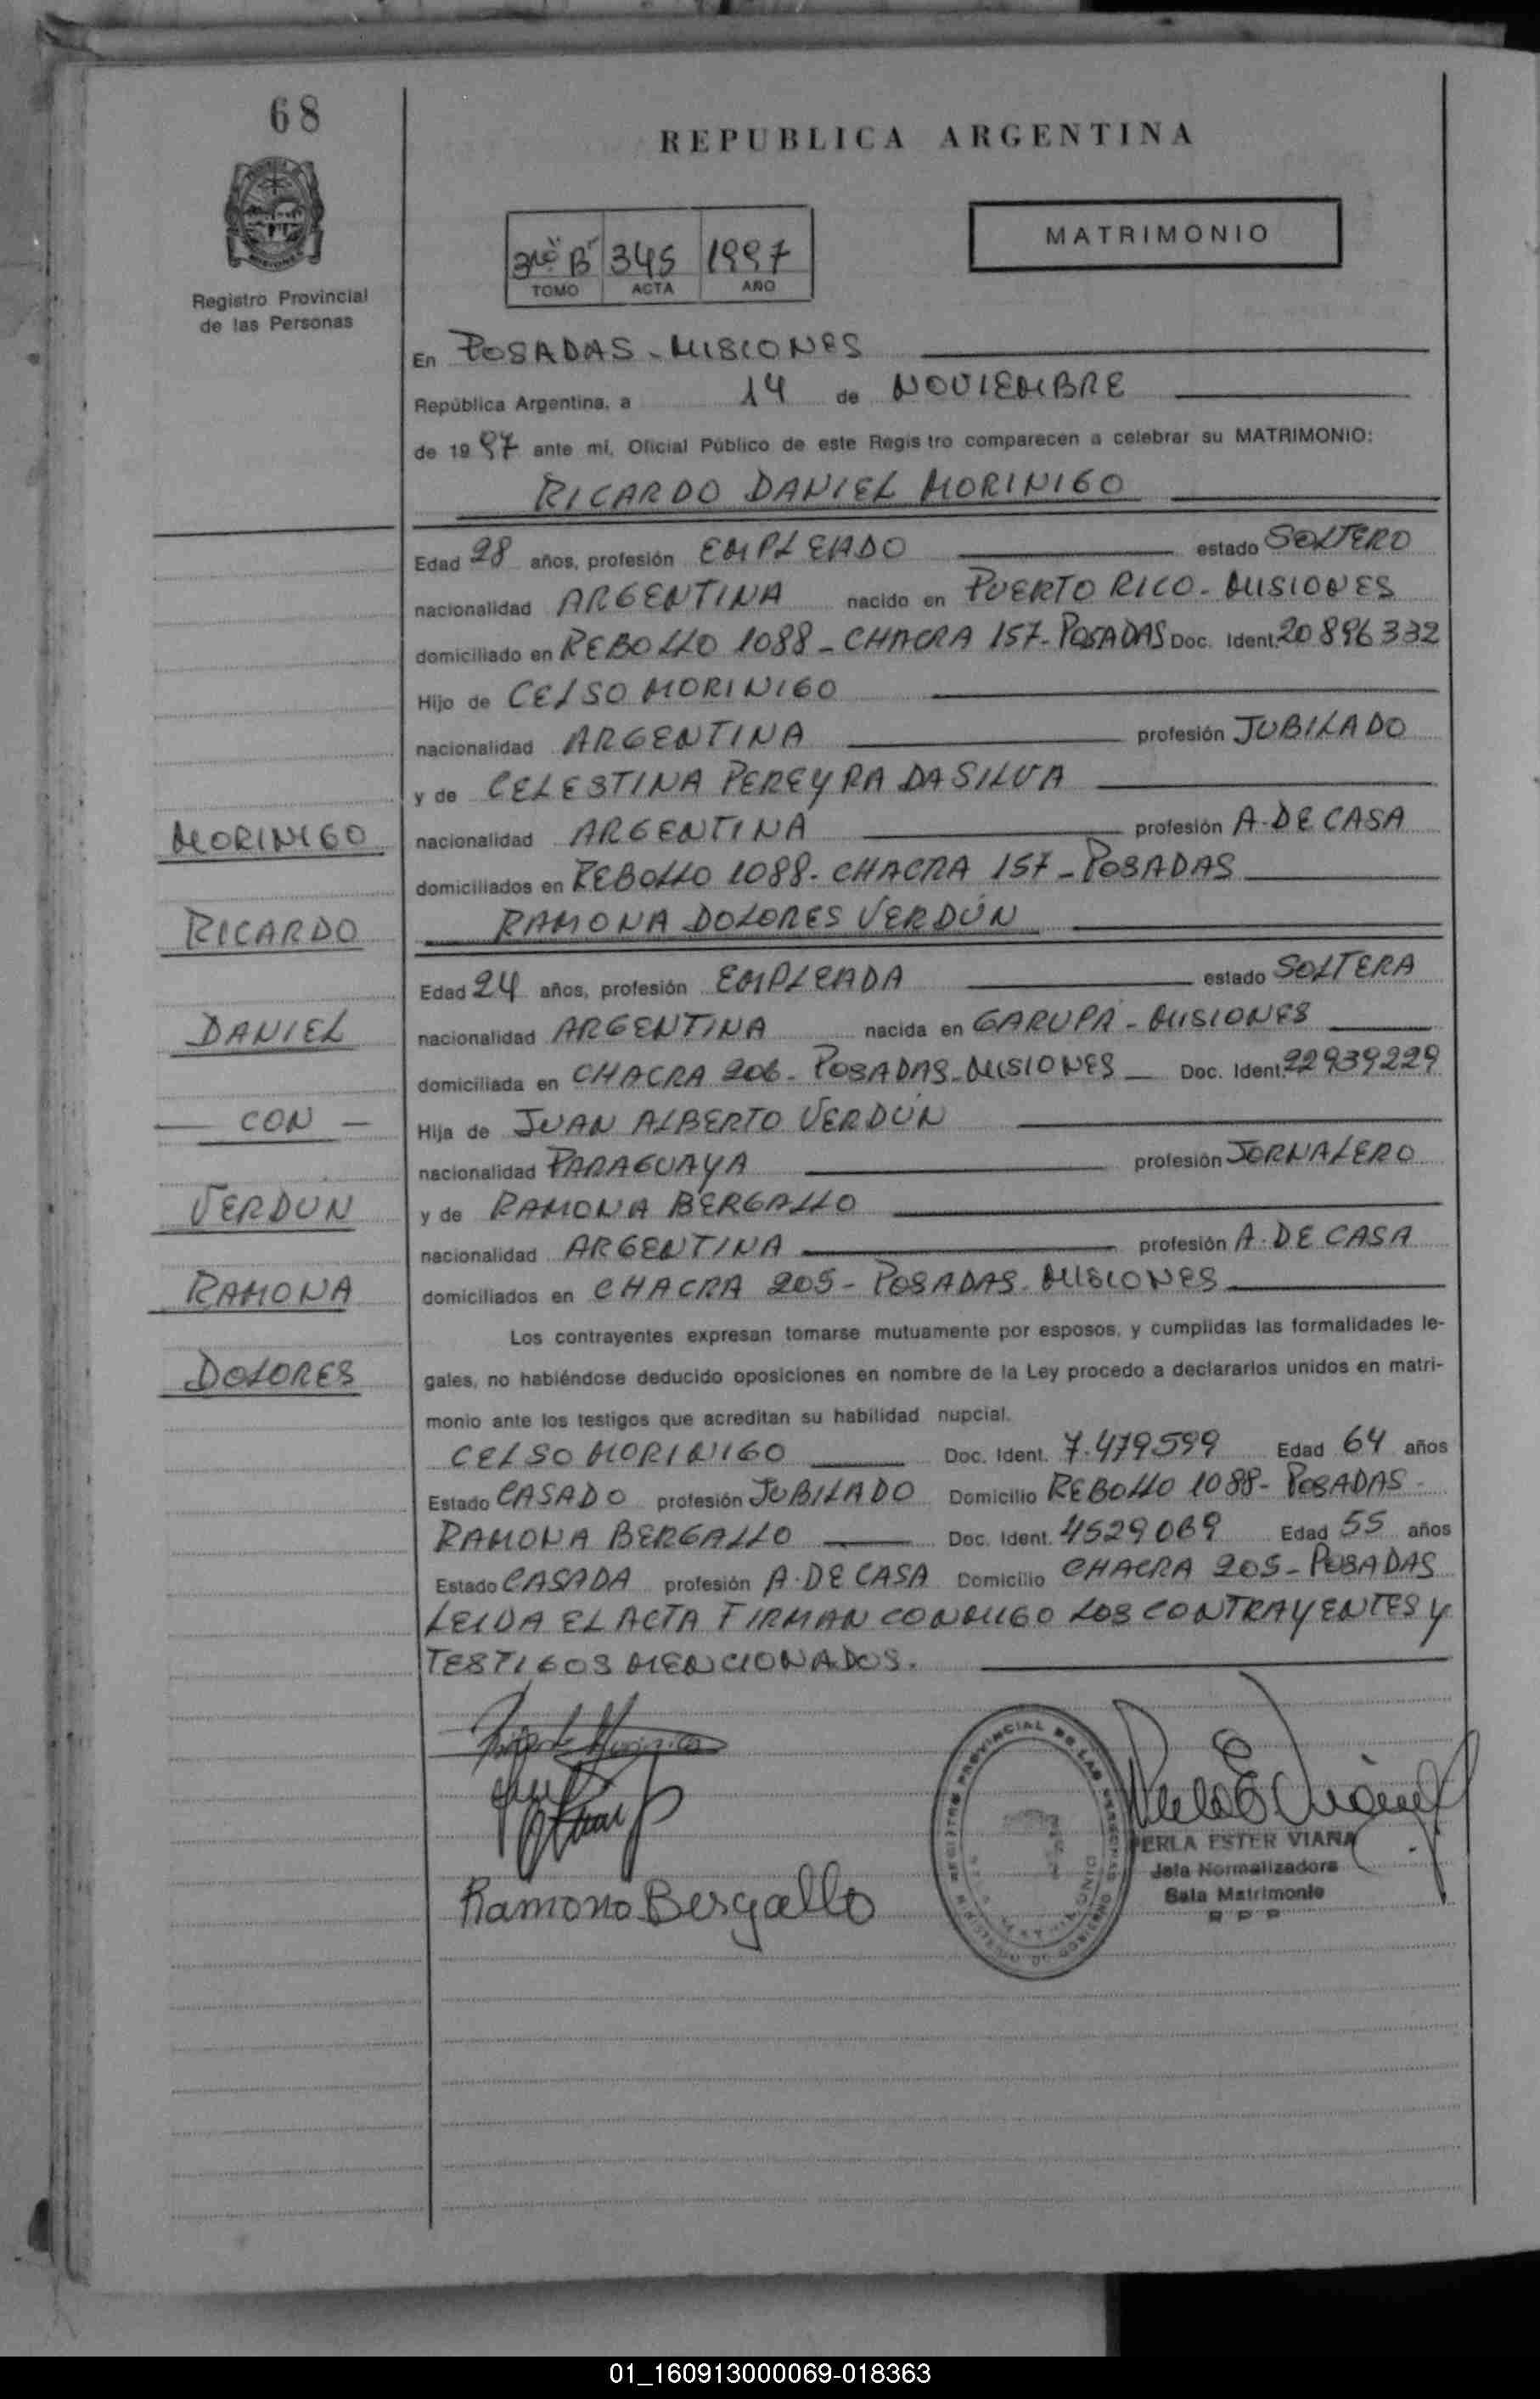 68
REPUBLICA ARGENTINA
MATRIMONIO
3ro "B" 345 1997
TOMO ACTA AÑO
Registro Provincial
de las Personas
En POSADAS - MISIONES
República Argentina, a 14 de NOVIEMBRE
de 1997 ante mí, Oficial Público de este Regis tro comparecen a celebrar su MATRIMONIO:
RICARDO DANIEL MORINIGO
Edad 28 años, profesión EMPLEADO estado SOLTERO
nacionalidad ARGENTINA nacido en PUERTO RICO - MISIONES
domiciliado en REBOLLO 1088 - CHACRA 157 - POSADAS Doc. Ident. 20896332
Hijo de CELSO MORINIGO
nacionalidad ARGENTINA profesión JUBILADO
y de CELESTINA PEREYRA DA SILVA
nacionalidad ARGENTINA profesión A. DE CASA
domiciliados en REBOLLO 1088 - CHACRA 157 - POSADAS
RAMONA DOLORES VERDÚN
Edad 24 años, profesión EMPLEADA estado SOLTERA
nacionalidad ARGENTINA nacida en GARUPÁ - MISIONES
domiciliada en CHACRA 206 - POSADAS - MISIONES Doc. Ident. 22939229
Hija de JUAN ALBERTO VERDÚN
nacionalidad PARAGUAYA profesión JORNALERO
y de RAMONA BERGALLO
nacionalidad ARGENTINA profesión A. DE CASA
domiciliados en CHACRA 205 - POSADAS - MISIONES
Los contrayentes expresan tomarse mutuamente por esposos, y cumplidas las formalidades le-
gales, no habiéndose deducido oposiciones en nombre de la Ley procedo a declararlos unidos en matri-
monio ante los testigos que acreditan su habilidad nupcial.
CELSO MORINIGO Doc. Ident. 7.479599 Edad 64 años
Estado CASADO profesión JUBILADO Domicilio REBOLLO 1088 - POSADAS -
RAMONA BERGALLO Doc. Ident. 4529069 Edad 55 años
Estado CASADA profesión A. DE CASA Domicilio CHACRA 205 - POSADAS
LEIDA EL ACTA FIRMAN CONMIGO LOS CONTRAYENTES Y
TESTIGOS MENCIONADOS.
MORINIGO
RICARDO
DANIEL
- CON -
VERDUN
RAMONA
DOLORES
Ramona Bergallo
REGISTRO PROVINCIAL DE LAS PERSONAS
PERLA ESTER VIANA
Jefa Normalizadora
Sala Matrimonio
R P P
01_160913000069-018363